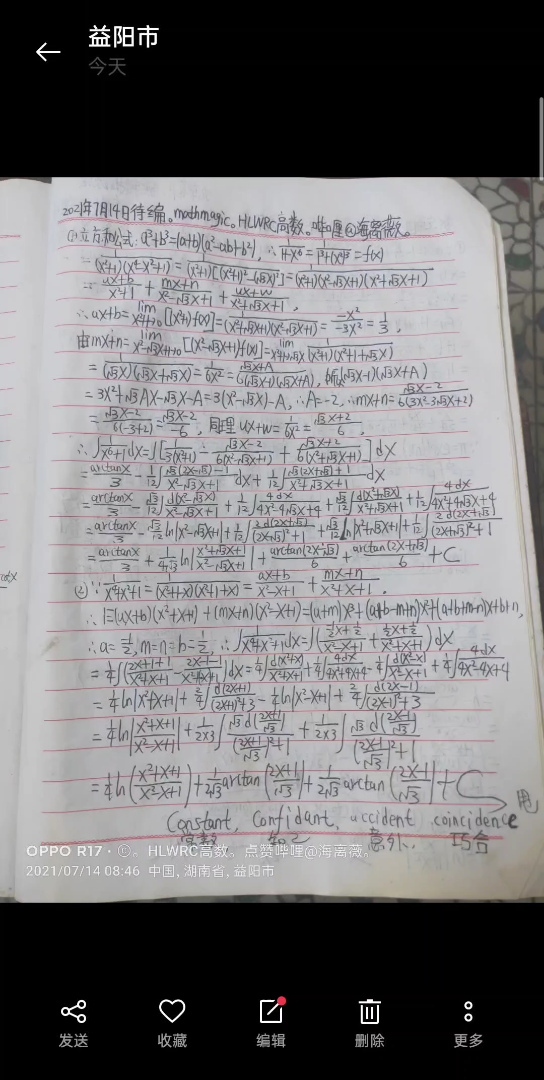 益阳市
今天
2021年7月14日待编。mathmagic。HLWRC高数。哔哩@海离薇。
(1)立方和公式: a³+b³=(a+b)(a²-ab+b²), ∴ 1/(1+x⁶) = 1/(1³+(x²)³) = f(x)
= 1/((x²+1)(x⁴-x²+1)) = 1/((x²+1)[(x²+1)²-(√3x)²]) = 1/((x²+1)(x²-√3x+1)(x²+√3x+1))
= (ax+b)/(x²+1) + (mx+n)/(x²-√3x+1) + (ux+w)/(x²+√3x+1),
∴ ax+b = lim x²+1→0 [(x²+1)f(x)] = 1/((x²+√3x+1)(x²-√3x+1)) = -x²/(-3x²) = 1/3,
由mx+n = lim x²-√3x+1→0 [(x²-√3x+1)f(x)] = lim 1/((x²+1)(x²+1+√3x))
= 1/((√3x)(√3x+√3x)) = 1/(6x²) = (√3x+A)/(6(√3x-1)(√3x+A)),
= 3x²+√3Ax-√3x-A = 3(x²-√3x)-A, ∴A=-2, ∴mx+n = (√3x-2)/(6(3x²-3√3x+2))
= (√3x-2)/(6(-3+2)) = (√3x-2)/(-6), 同理 ux+w = 1/(6x²) = (√3x+2)/6.
∴ ∫1/(x⁶+1)dx = ∫[1/(3(x²+1)) - (√3x-2)/(6(x²-√3x+1)) + (√3x+2)/(6(x²+√3x+1))]dx
= arctanx/3 - 1/12∫(√3(2x-√3)-1)/(x²-√3x+1)dx + 1/12∫(√3(2x+√3)+1)/(x²+√3x+1)dx
= arctanx/3 - √3/12∫d(x²-√3x)/(x²-√3x+1) + 1/12∫4dx/(4x²-4√3x+4) + √3/12∫d(x²+√3x)/(x²+√3x+1) + 1/12∫4dx/(4x²+4√3x+4)
= arctanx/3 - √3/12 ln|x²-√3x+1| + 1/12∫2d(2x-√3)/((2x-√3)²+1) + √3/12 ln|x²+√3x+1| + 1/12∫2d(2x+√3)/((2x+√3)²+1)
= arctanx/3 + 1/(4√3) ln|(x²+√3x+1)/(x²-√3x+1)| + arctan(2x-√3)/6 + arctan(2x+√3)/6 + C
(2)∵ 1/(x⁴+x²+1) = 1/((x²+1-x)(x²+1+x)) = (ax+b)/(x²-x+1) + (mx+n)/(x²+x+1).
∴ 1=(ax+b)(x²+x+1)+(mx+n)(x²-x+1)=(a+m)x³+(a+b-m+n)x²+(a+b+m-n)x+b+n,
∴ a=-1/2, m=n=b=1/2, ∴∫1/(x⁴+x²+1)dx = ∫((-1/2x+1/2)/(x²-x+1) + (1/2x+1/2)/(x²+x+1))dx
= 1/4∫((2x+1+1)/(x²+x+1) - (2x-1-1)/(x²-x+1))dx = 1/4∫d(x²+x)/(x²+x+1) + 1/4∫4dx/(4x²+4x+4) - 1/4∫d(x²-x)/(x²-x+1) + 1/4∫4dx/(4x²-4x+4)
= 1/4ln|x²+x+1| + 2/4∫d(2x+1)/((2x+1)²+3) - 1/4ln|x²-x+1| + 2/4∫d(2x-1)/((2x-1)²+3)
= 1/4ln|(x²+x+1)/(x²-x+1)| + 1/(2×3)∫√3d((2x+1)/√3)/(((2x+1)/√3)²+1) + 1/(2×3)∫√3d((2x-1)/√3)/(((2x-1)/√3)²+1)
= 1/4ln((x²+x+1)/(x²-x+1)) + 1/(2√3)arctan((2x+1)/√3) + 1/(2√3)arctan((2x-1)/√3) + C
Constant, Confidant, accident coincidence
常数 知己 意外 巧合
OPPO R17·©。HLWRC高数。点赞哔哩@海离薇。
2021/07/14 08:46 中国, 湖南省, 益阳市
发送 收藏 编辑 删除 更多